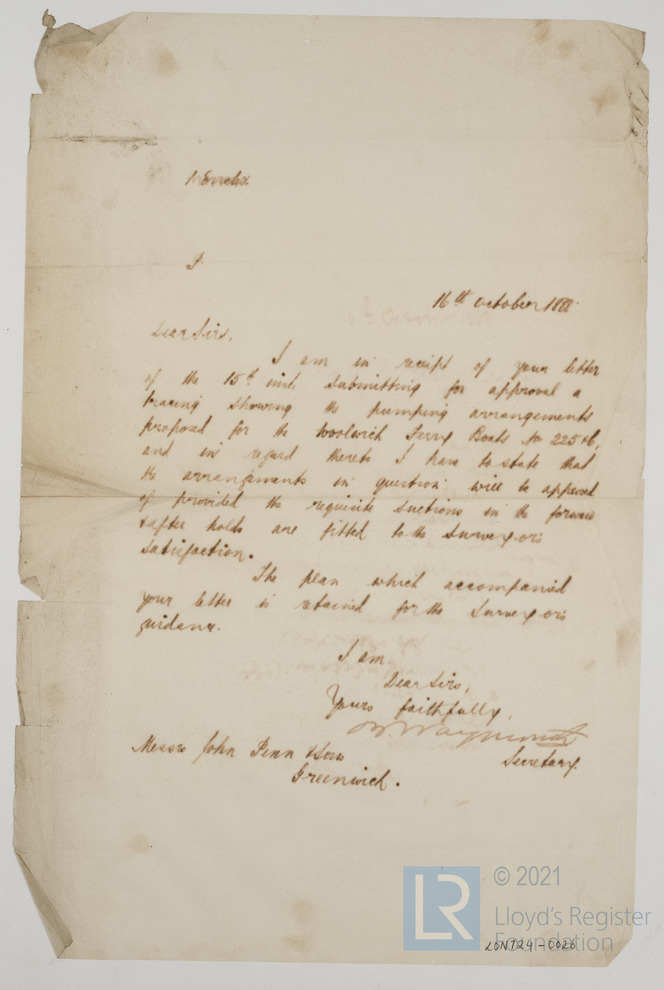 16th October 188
Dear Sirs,
I am in receipt of your letter
of the 15th inst. submitting for approval a
tracing showing the pumping arrangements
proposed for the Woolwich Ferry Boats No 225 & 6,
and in regard thereto I have to state that
the arrangements in question will be approved
of provided the requisite suctions in the forward
& after holds are fitted to the Surveyors
satisfaction.
The plan which accompanied
your letter is retained for the Surveyors
guidance.
I am
Dear Sirs,
Yours faithfully,
Waymouth
Secretary.
Messrs John Penn & Sons
Greenwich.
LR
© 2021
Lloyd's Register
Foundation
LON724-0026